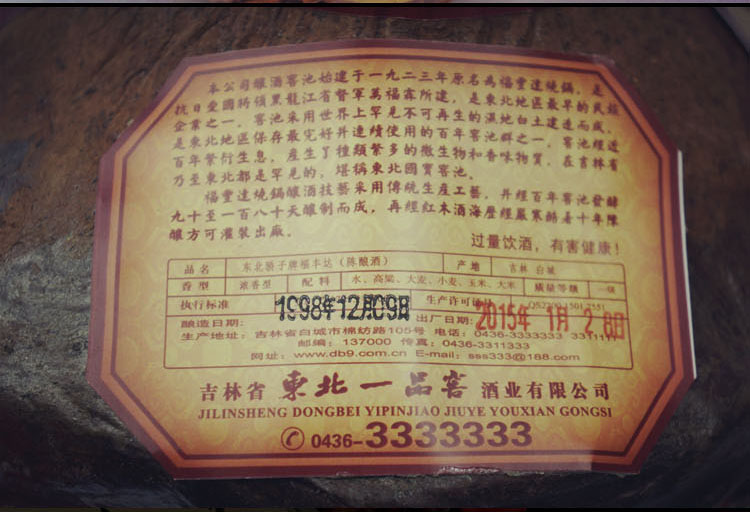 本公司釀酒窖池始建于一九二三年原名為福豐達燒鍋，是
抗日愛國將領黑龍江省督軍萬福霖所建，是東北地區最早的民族
企業之一，窖池采用世界上罕見不可再生的濕地白土建造而成，
是東北地區保存最完好并連續使用的百年窖池群之一，窖池經近
百年繁衍生息，產生了種類繁多的微生物和香味物質，在吉林省
乃至東北都是罕見的，堪稱東北國寶窖池。
福豐達燒鍋釀酒技藝采用傳統生產工藝，并經百年窖池發酵
九十至一百八十天釀制而成，再經紅木酒海歷經嚴寒酷暑十年陳
釀方可灌裝出廠。
过量饮酒，有害健康！
品名 东北骄子牌福丰达（陈酿酒） 产地 吉林 白城
香型 浓香型 配料 水、高粱、大麦、小麦、玉米、大米 质量等级 一级
执行标准 生产许可证 QS2200 1501 2551
酿造日期： 1998年12月09日 出厂日期： 2015年 1月 28日
生产地址：吉林省白城市棉纺路105号 电话：0436-3333333
邮编：137000 传真：0436-3311333
网址：www.db9.com.cn E-mail：sss333@188.com
吉林省 東北一品窖 酒业有限公司
JILINSHENG DONGBEI YIPINJIAO JIUYE YOUXIAN GONGSI
0436-3333333